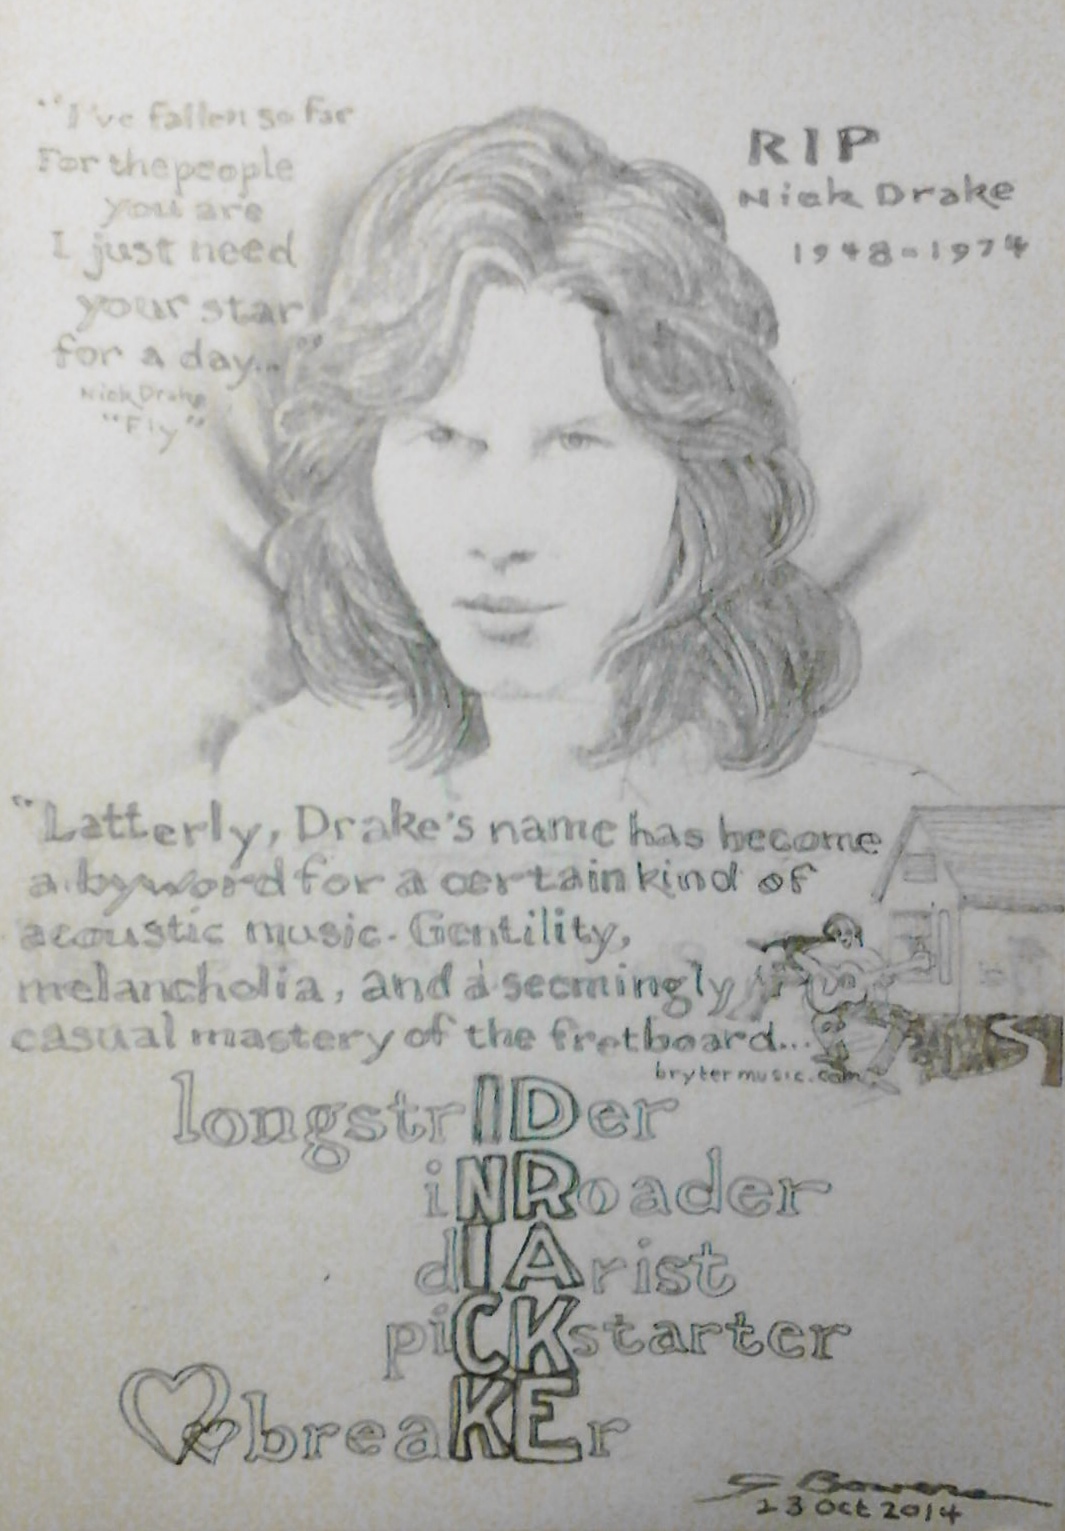 "I've fallen so far
For the people
you are
I just need
your star
for a day..."
Nick Drake
"Fly"
RIP
Nick Drake
1948-1974
"Latterly, Drake's name has become
a byword for a certain kind of
acoustic music. Gentility,
melancholia, and a seemingly
casual mastery of the fretboard...
brytermusic.com
longstrIDer
iNRoader
dIArist
piCKstarter
breaKEr
S Bowers
23 Oct 2014